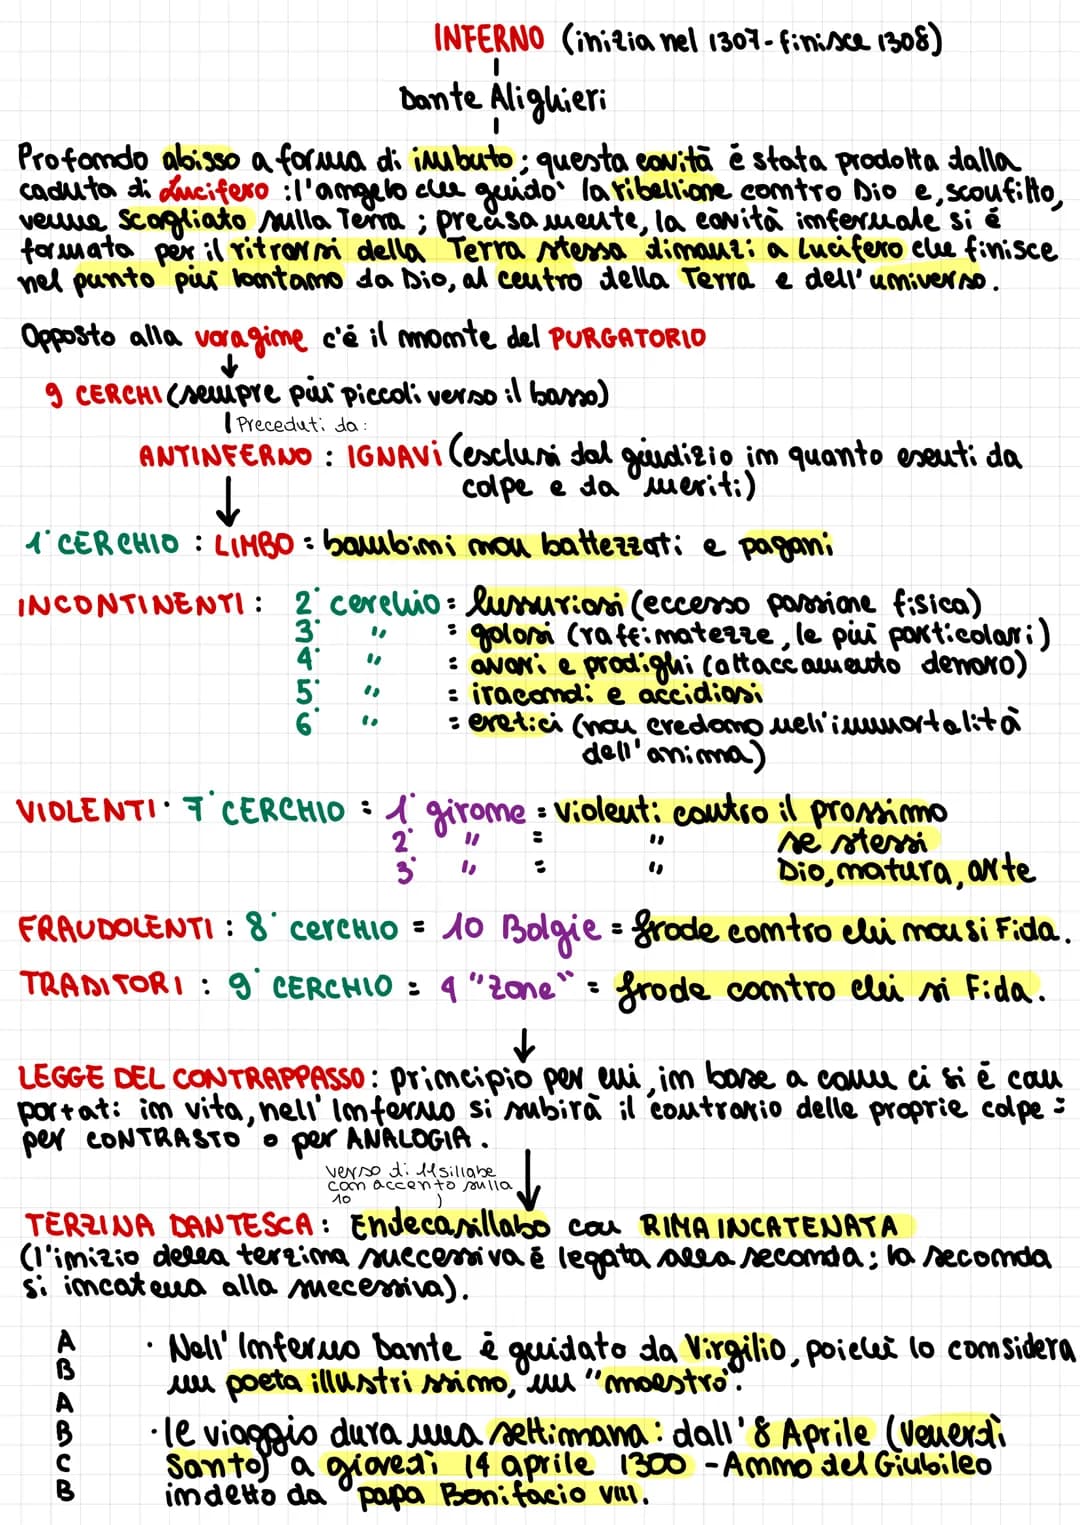 INFERNO (inizia nel 1307-finisce 1308)
Dante Alighieri
Profondo abisso a forma di imbuto; questa cavità è stata prodotta dalla
caduta di Lucifero: l'angelo che guidò la ribellione contro Dio e, sconfitto,
venne scagliato sulla Terra; precisamente, la cavità infernale si è
formata per il ritrarsi della Terra stessa dinanzi a Lucifero che finisce
nel punto più lontano da Dio, al centro della Terra e dell'universo.
Opposto alla voragine c'è il monte del PURGATORIO
9 CERCHI (sempre più piccoli verso il basso)
Preceduti da:
ANTINFERNO: IGNAVI (esclusi dal giudizio in quanto esenti da
colpe e da meriti)
1° CERCHIO: LIMBO = bambini non battezzati e pagani
INCONTINENTI: 2° cerchio = lussuriosi (eccesso passione fisica)
3° " = golosi (raffinatezze, le più particolari)
4° " = avari e prodighi (attaccamento denaro)
5° " = iracondi e accidiosi
6° " = eretici (non credono nell'immortalità
dell'anima)
VIOLENTI: 7° CERCHIO = 1° girone = violenti contro il prossimo
2° " = " se stessi
3° " = " Dio, natura, arte
FRAUDOLENTI: 8° cerchio = 10 Bolgie = frode contro chi non si fida.
TRADITORI: 9° CERCHIO = 4 "zone" = frode contro chi si fida.
LEGGE DEL CONTRAPPASSO: principio per cui, in base a come ci si è com
portati in vita, nell'Inferno si subirà il contrario delle proprie colpe =
per CONTRASTO o per ANALOGIA.
verso di 11 sillabe
con accento sulla
10)
TERZINA DANTESCA: Endecasillabo con RIMA INCATENATA
(l'inizio della terzina successiva è legata alla seconda; la seconda
si incatena alla successiva).
A
B
A
B
C
B
· Nell'Inferno Dante è guidato da Virgilio, poiché lo considera
un poeta illustrissimo, un "maestro".
· Il viaggio dura una settimana: dall'8 Aprile (Venerdì
Santo) a giovedì 14 aprile 1300 - Anno del Giubileo
indetto da papa Bonifacio VIII.